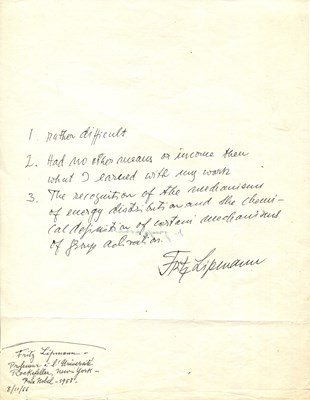 1. rather difficult
2. Had no other means or income then
what I earned with my work
3. The recognition of the mechanisms
of energy distribution and the chemi-
cal definition of certain mechanisms
of group activation.
Fritz Lipmann
Fritz Lipmann -
Professeur à l'Université
Rockefeller, New-York -
Prix Nobel - 1953 -
8/11/66